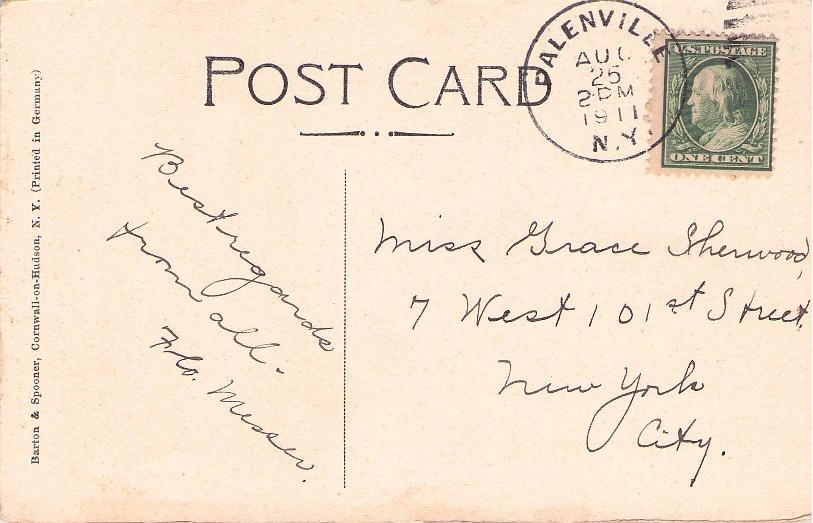 POST CARD
PALENVILLE
AUG
25
2 PM
1911
N.Y.
U.S. POSTAGE
ONE CENT
Best regards
from all.
Flo. Messer.
Miss Grace Sherwood,
7 West 101st Street,
New York
City.
Barton & Spooner, Cornwall-on-Hudson, N. Y. (Printed in Germany)